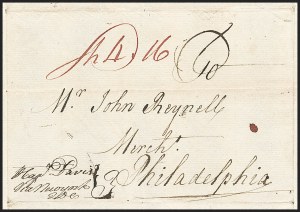 Sh 4. 16
To
Mr. John Reynell
Mercht.
Philadelphia
Capt. Davis